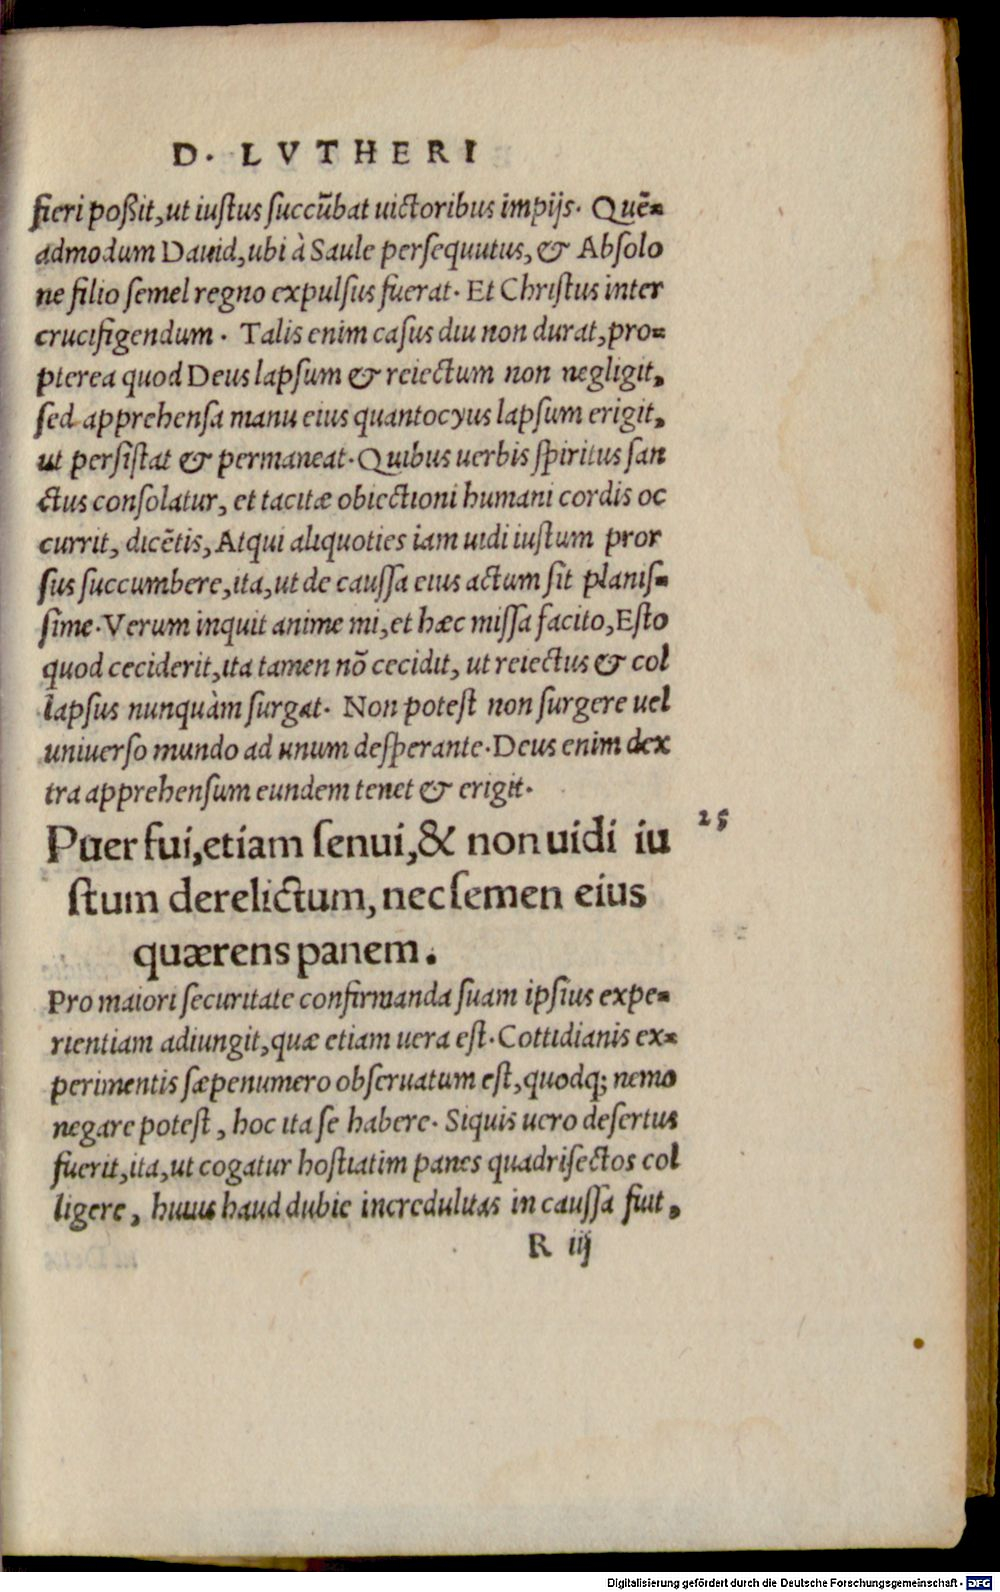 D. LVTHERI
fieri poßit, ut iuſtus ſuccūbat uictoribus impijs. Quē=
admodum Dauid, ubi à Saule perſequutus, & Abſolo
ne filio ſemel regno expulſus fuerat. Et Chriſtus inter
crucifigendum. Talis enim caſus diu non durat, pro=
pterea quod Deus lapſum & reiectum non negligit,
ſed apprehenſa manu eius quantocyus lapſum erigit,
ut perſiſtat & permaneat. Quibus uerbis ſpiritus ſan
ctus conſolatur, et tacitæ obiectioni humani cordis oc
currit, dicētis, Atqui aliquoties iam uidi iuſtum pror
ſus ſuccumbere, ita, ut de cauſſa eius actum ſit planiſ=
ſime. Verum inquit anime mi, et hæc miſſa facito, Eſto
quod ceciderit, ita tamen nō cecidit, ut reiectus & col
lapſus nunquàm ſurgat. Non poteſt non ſurgere uel
uniuerſo mundo ad unum deſperante. Deus enim dex
tra apprehenſum eundem tenet & erigit.
Puer fui, etiam ſenui, & non uidi iu 25
ſtum derelictum, nec ſemen eius
quærens panem.
Pro maiori ſecuritate confirmanda ſuam ipſius expe=
rientiam adiungit, quæ etiam uera eſt. Cottidianis ex=
perimentis ſæpenumero obſeruatum eſt, quodq; nemo
negare poteſt, hoc ita ſe habere. Siquis uero deſertus
fuerit, ita, ut cogatur hoſtiatim panes quadriſectos col
ligere, huius haud dubie incredulitas in cauſſa fuit,
R iij
Digitalisierung gefördert durch die Deutsche Forschungsgemeinschaft - DFG